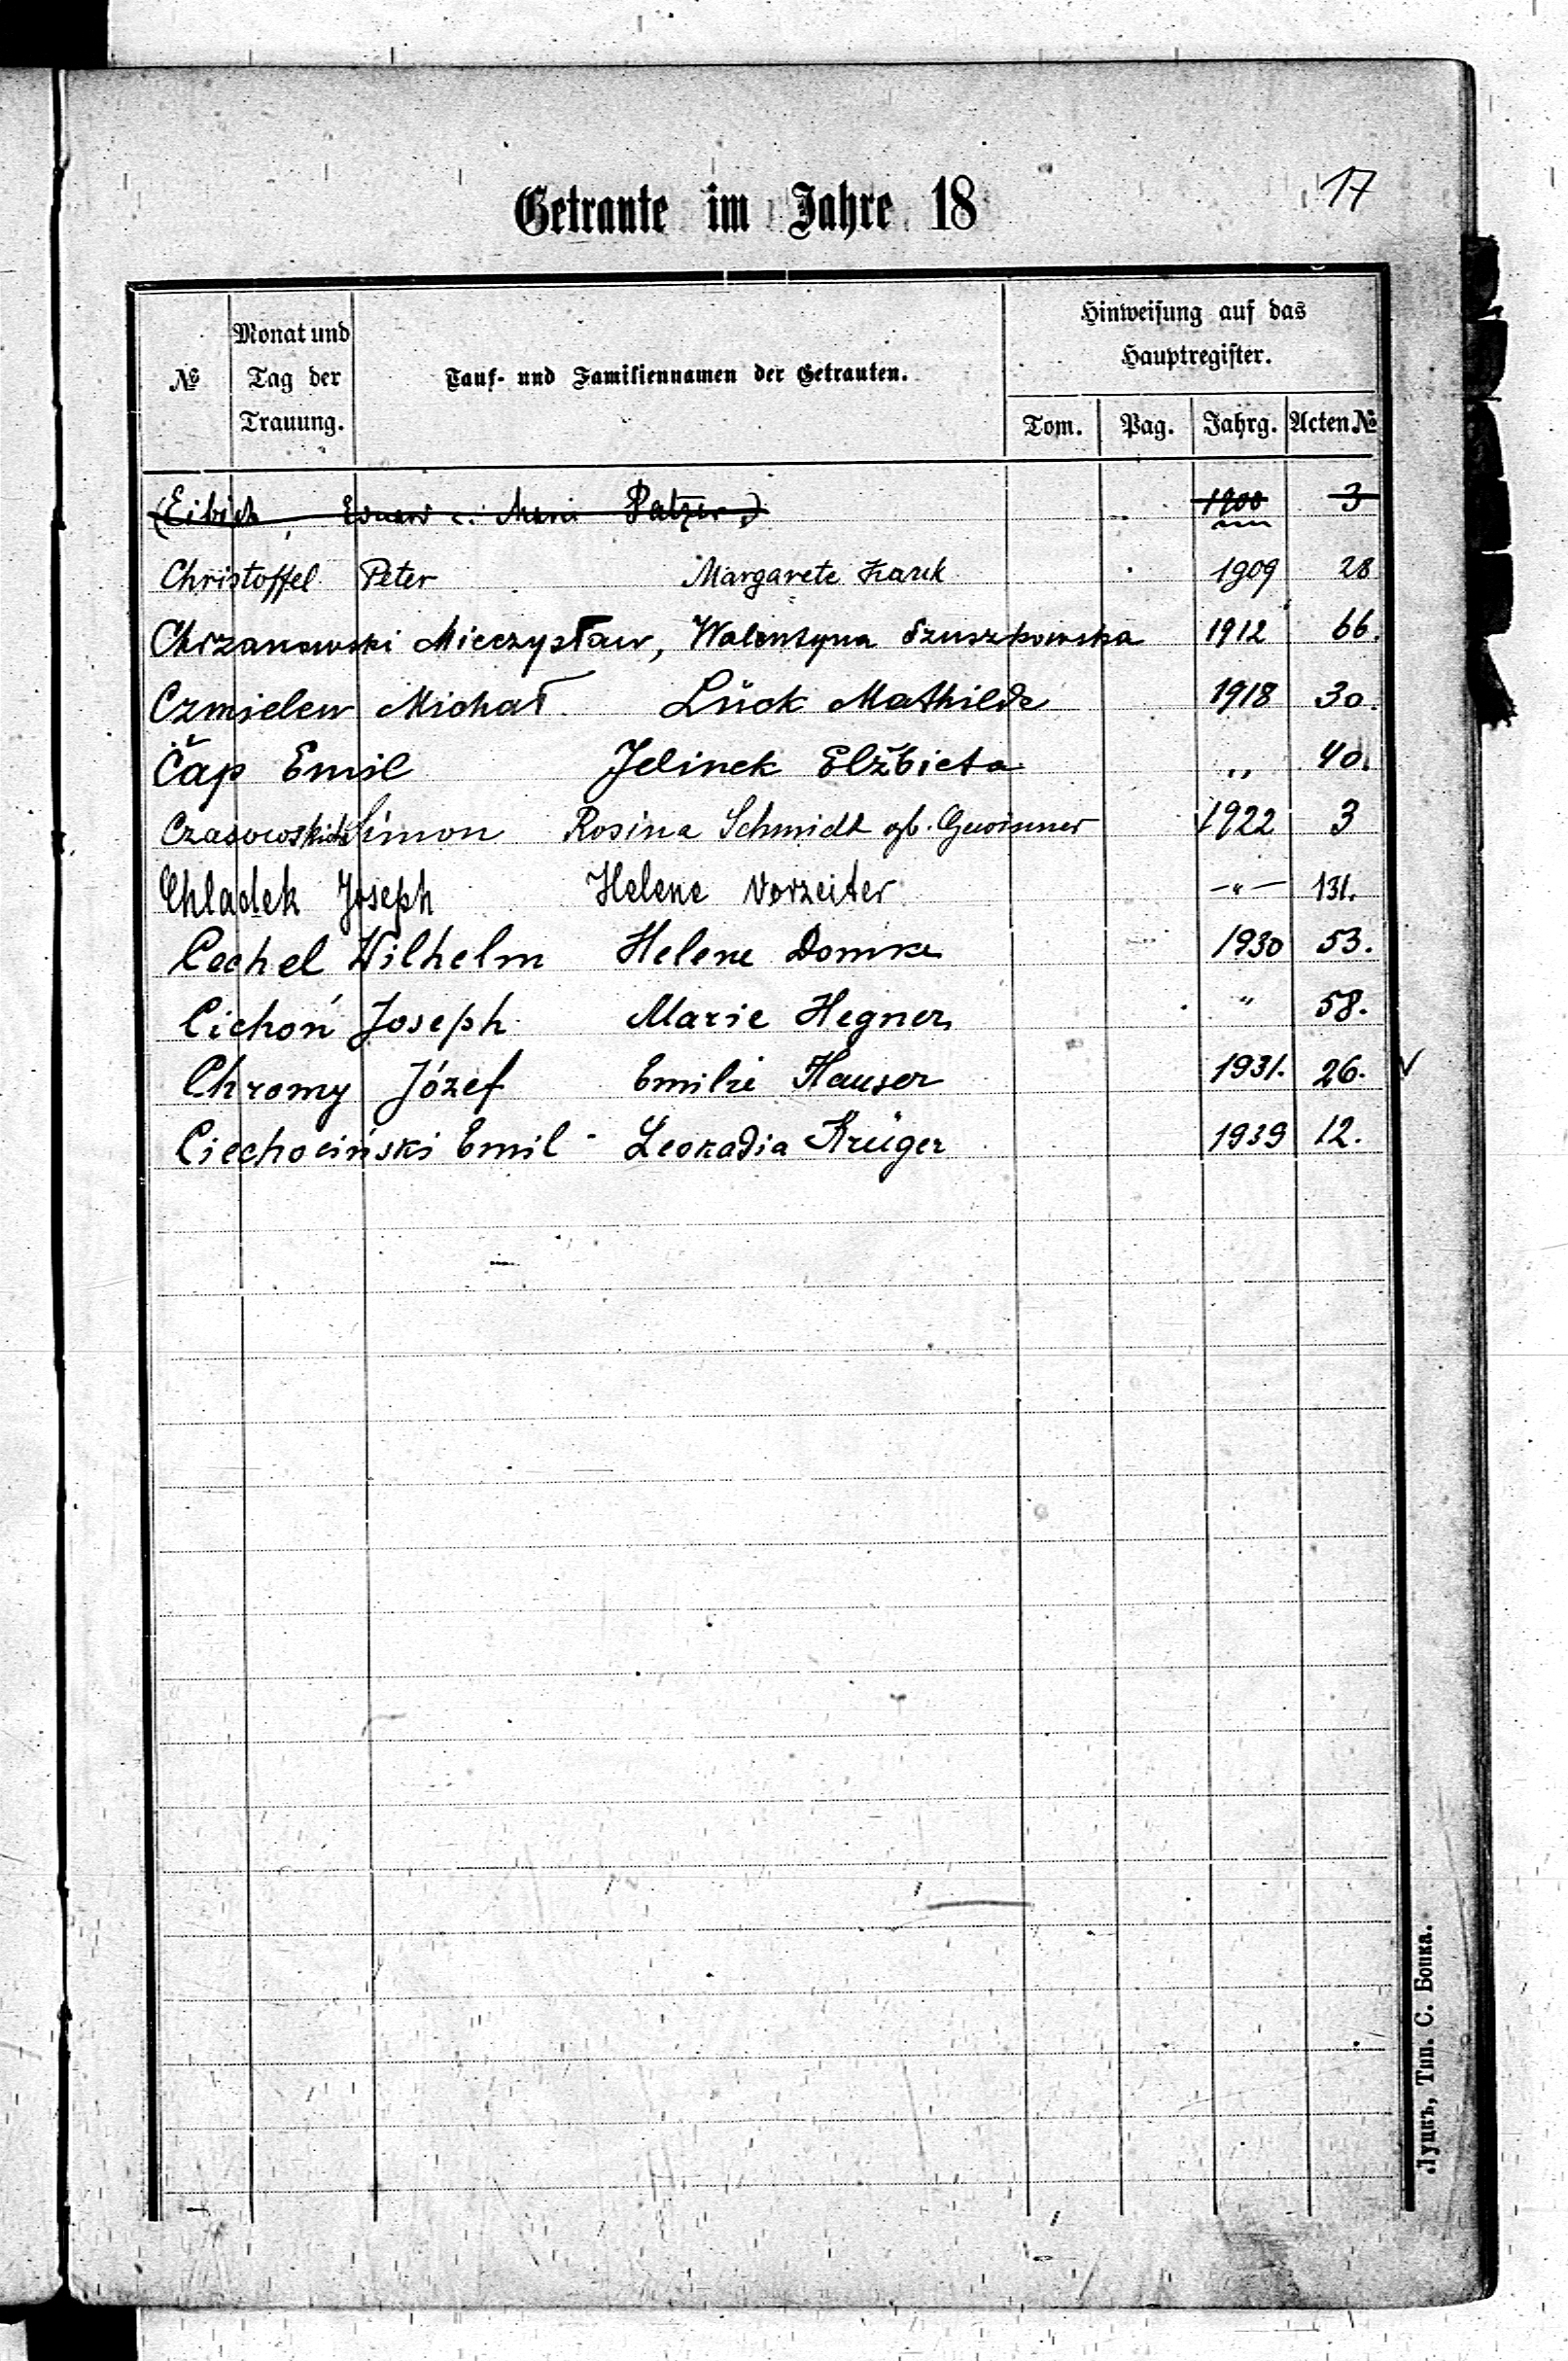 17
Getraute im Jahre 18
№
Monat und Tag der Trauung.
Tauf- und Familiennamen der Getrauten.
Hinweisung auf das Hauptregister.
Tom. Pag. Jahrg. Acten №
(Eibich, Eduard Patzer) 1900 3
Christoffel Peter Margarete 1909 28
Chrzanowski Mieczysław, Walentyna Szuszkowska 1912 66.
Czmielew Michał Lück Mathilde 1918 30.
Čap Emil Jelinek Elžbieta ,, 40.
Simon Rosina Schmidt gb. 1922 3
Chladek Joseph Helene Vorzeiter —"— 131.
Cechel Wilhelm Helene Domke 1930 53.
Cichoń Joseph Marie Hegner " 58.
Chromy Józef Emilie Hauser 1931. 26. ✓
Ciechociński Emil - Leokadia Krüger 1939 12.
Луцкъ, Тип. С. Бонка.